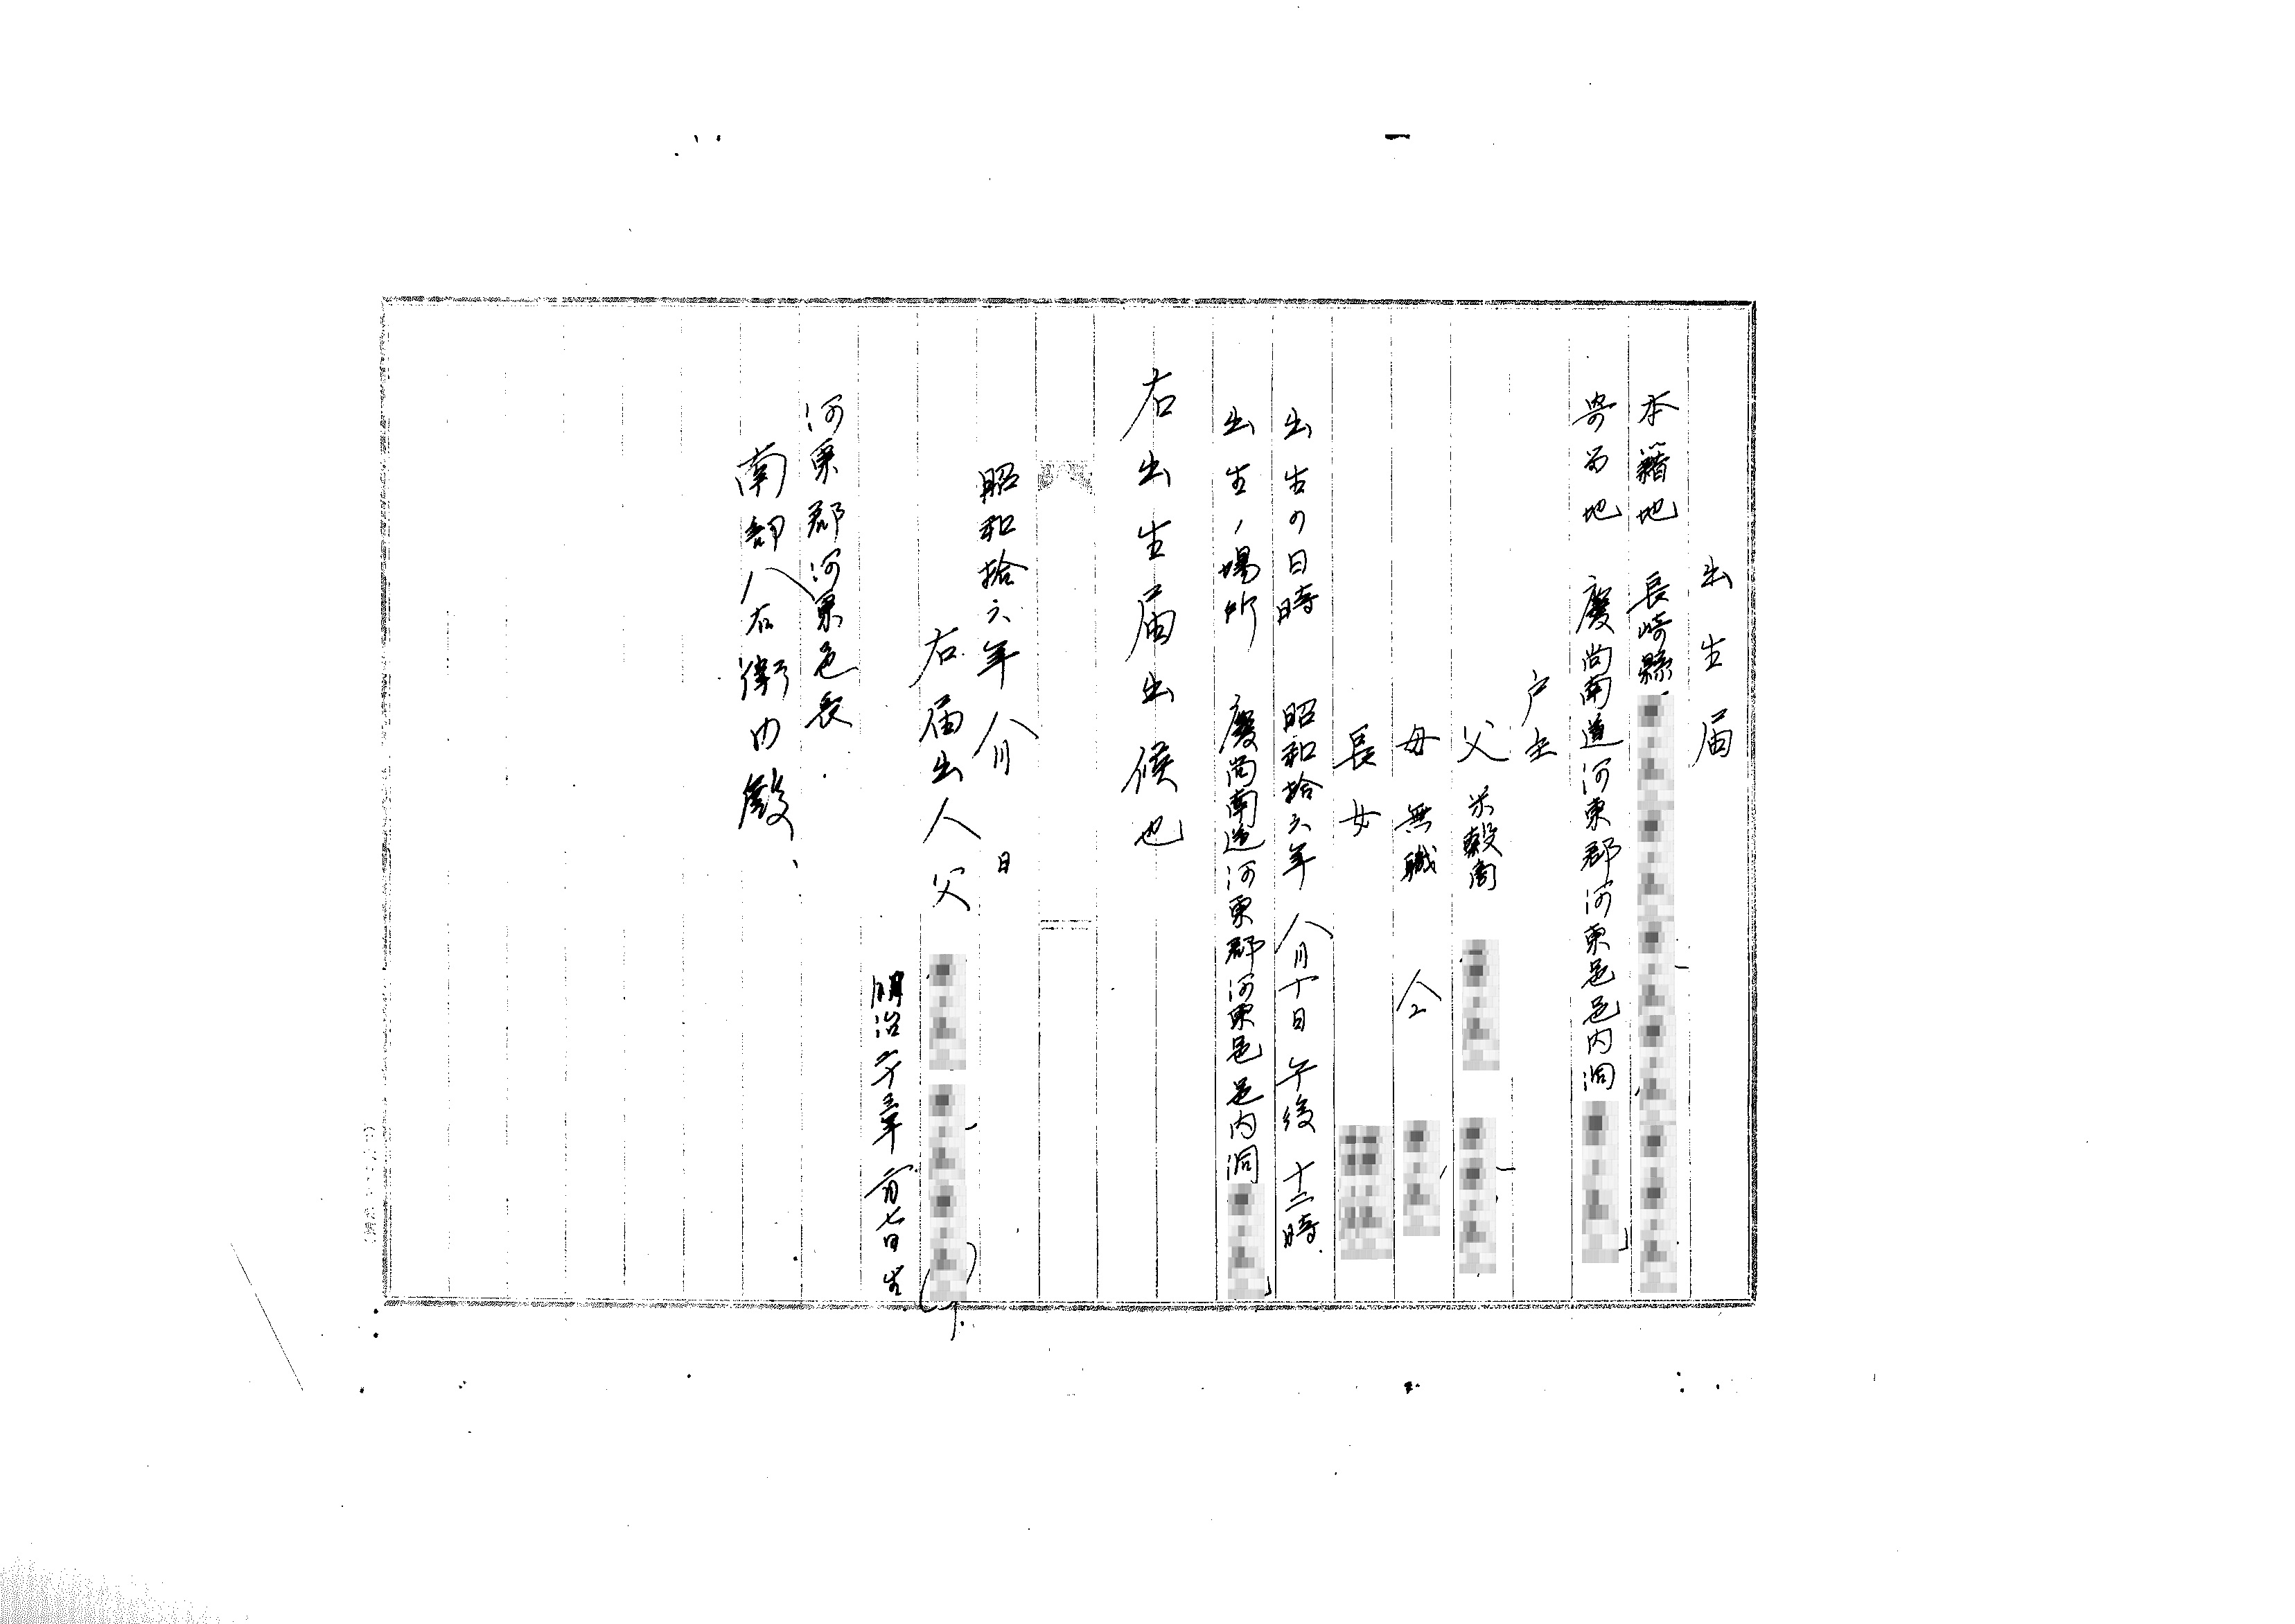 出生届
本籍地 長崎縣
寄留地 慶尚南道河東郡河東邑邑内洞
戸主
父 米穀商
母 無職 仝
長女
出生ノ日時 昭和拾六年八月十日午後十二時
出生ノ場所 慶尚南道河東郡河東邑邑内洞
右出生届出候也
昭和拾六年八月 日
右届出人父
明治 年 月七日生
河東郡河東邑長
南部八右衛門殿